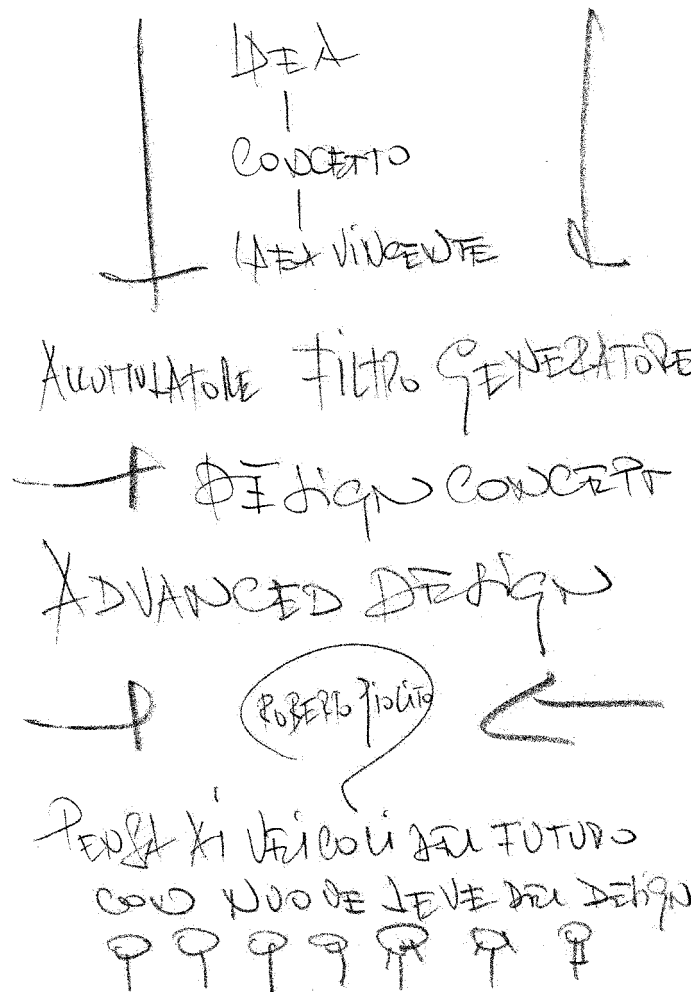 IDEA
CONCETTO
IDEA VINCENTE
ACCUMULATORE FILTRO GENERATORE
DESIGN CONCEPT
ADVANCED DESIGN
ROBERTO GIOLITO
PENSA AI VEICOLI DEL FUTURO
CON NUOVE LEVE DEL DESIGN